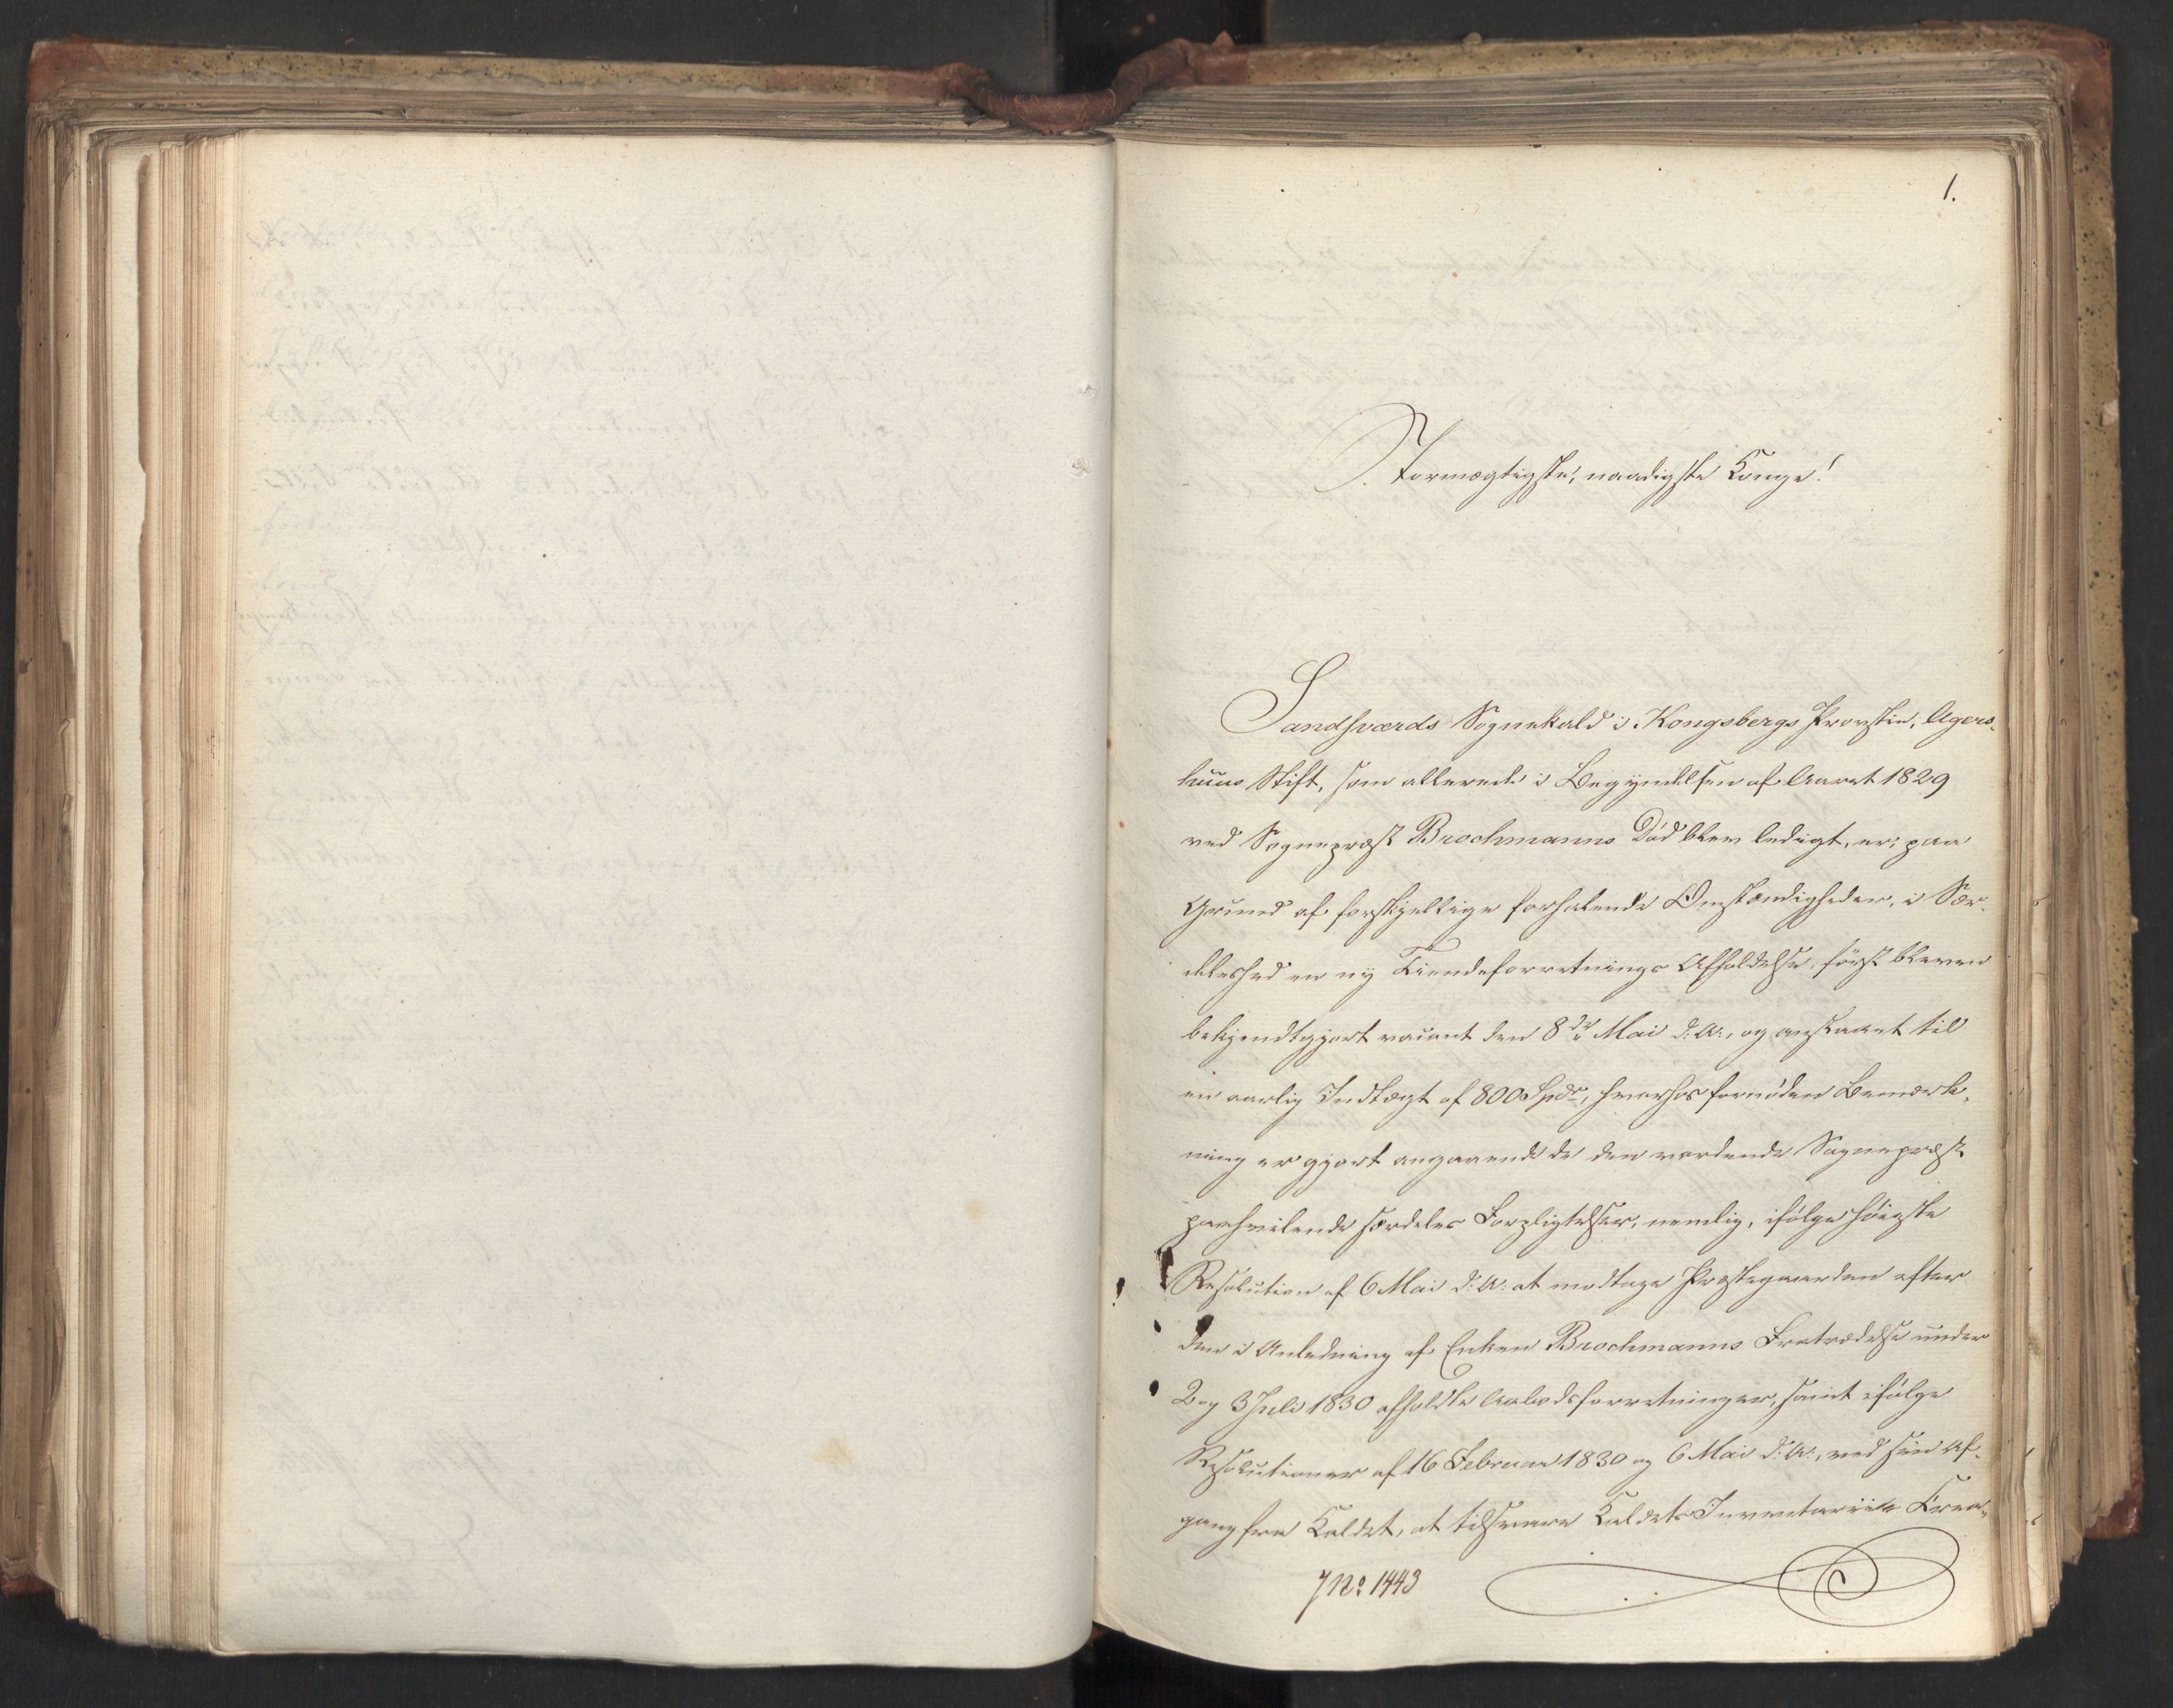 1.
Stormægtigste, naadigste Konge!
Sandsværds Sognekald i Kongsbergs Provstie, Agers-
huus Stift, som allerede i Begyndelsen af Aaret 1829
ved Sognepræst Brochmanns Død blev ledigt, er, paa
Grund af forskjellige forhalende Omstændigheder, i Sær-
deleshed en ny Tiendeforretnings Afholdelse, først bleven
bekjendtgjort vacant den 8de Mai d: A:, og anslaaet til
en aarlig Indtægt af 800 Spdr, hvorhos fornøden Bemærk-
ning er gjort angaaende de den vordende Sognepræst
paahvilende særdeles Forpligtelser, nemlig, ifølge høieste
Resolution af 6 Mai d: A: at modtage Præstegaarden efter
den i Anledning af Enken Brochmanns Fratrædelse under
2 og 3 Juli 1830 afholdte Aabodsforretninger, samt ifølge
Resolutioner af 16 Februar 1830 og 6 Mai d: A:, ved sin Af-
gang fra Kaldet, at tilsvare Kaldets Inventarii
J No 1443